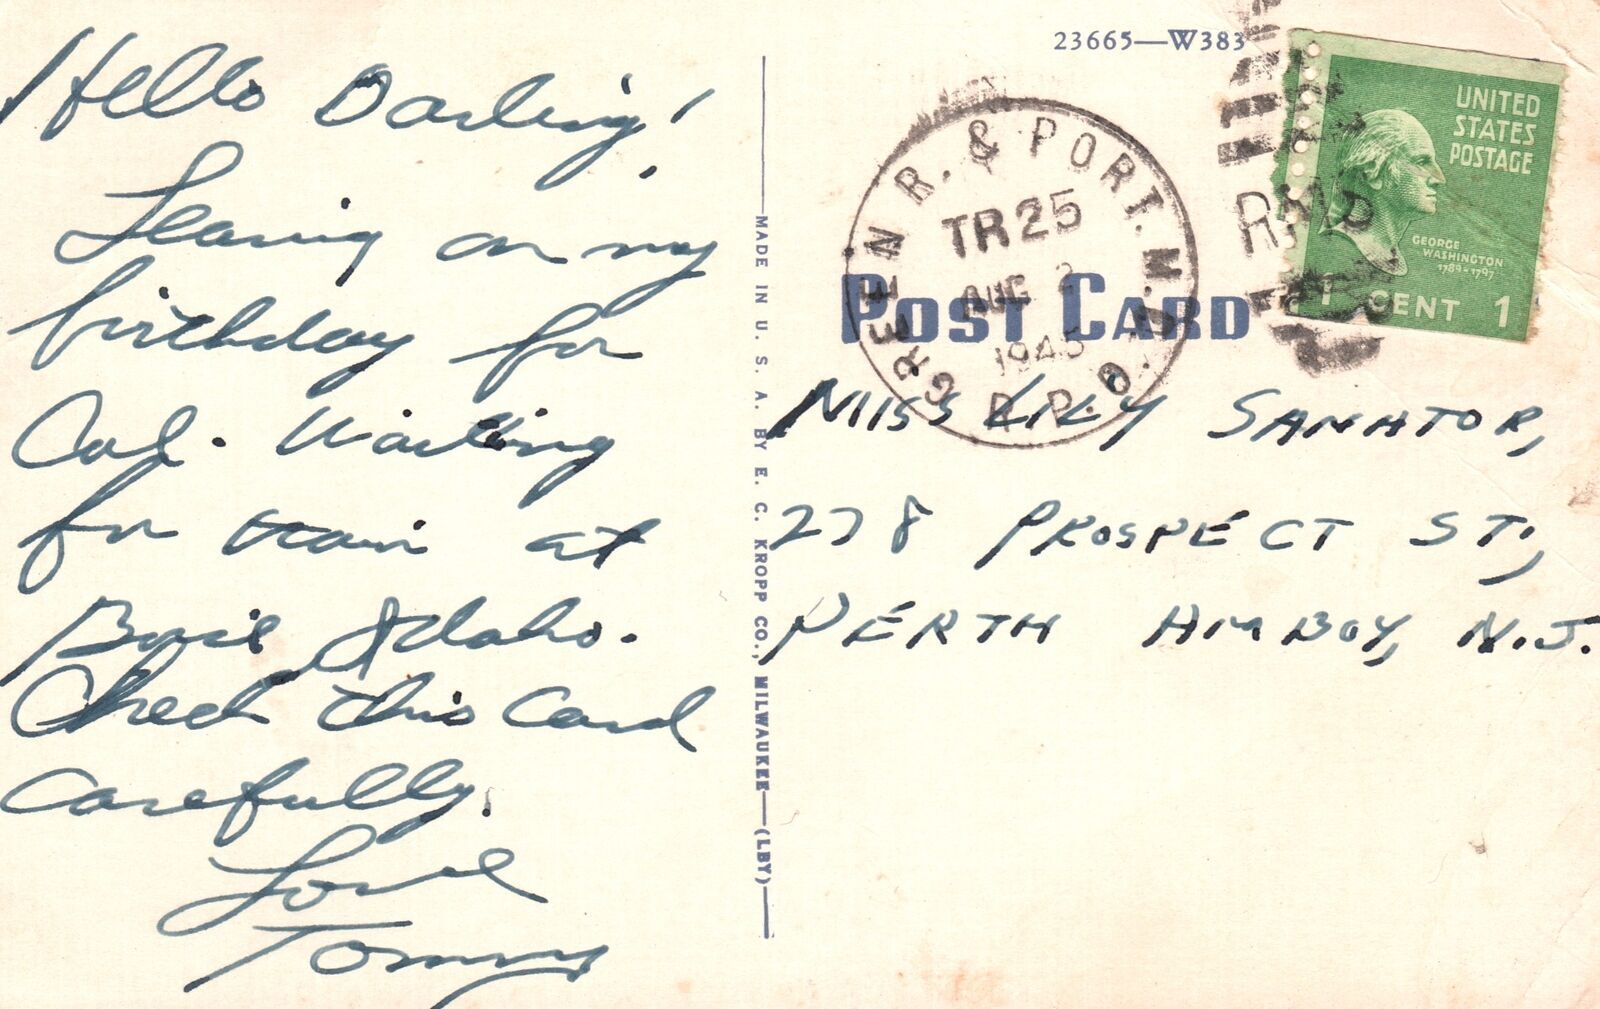 Hello Darling!
Leaving on my
birthday for
Cal. Waiting
for train at
Boise Idaho.
Check this Card
Carefully.
Love
Tommy
MADE IN U. S. A. BY E. C. KROPP CO., MILWAUKEE—(LBY)
23665—W383
GREEN R. & PORT. M.D.
TR 25
AUG 2
1945
R.P.O.
RMS
UNITED
STATES
POSTAGE
GEORGE
WASHINGTON
1789-1797
1 CENT 1
POST CARD
MISS LILY SANATOR,
278 PROSPECT ST.,
PERTH AMBOY, N.J.